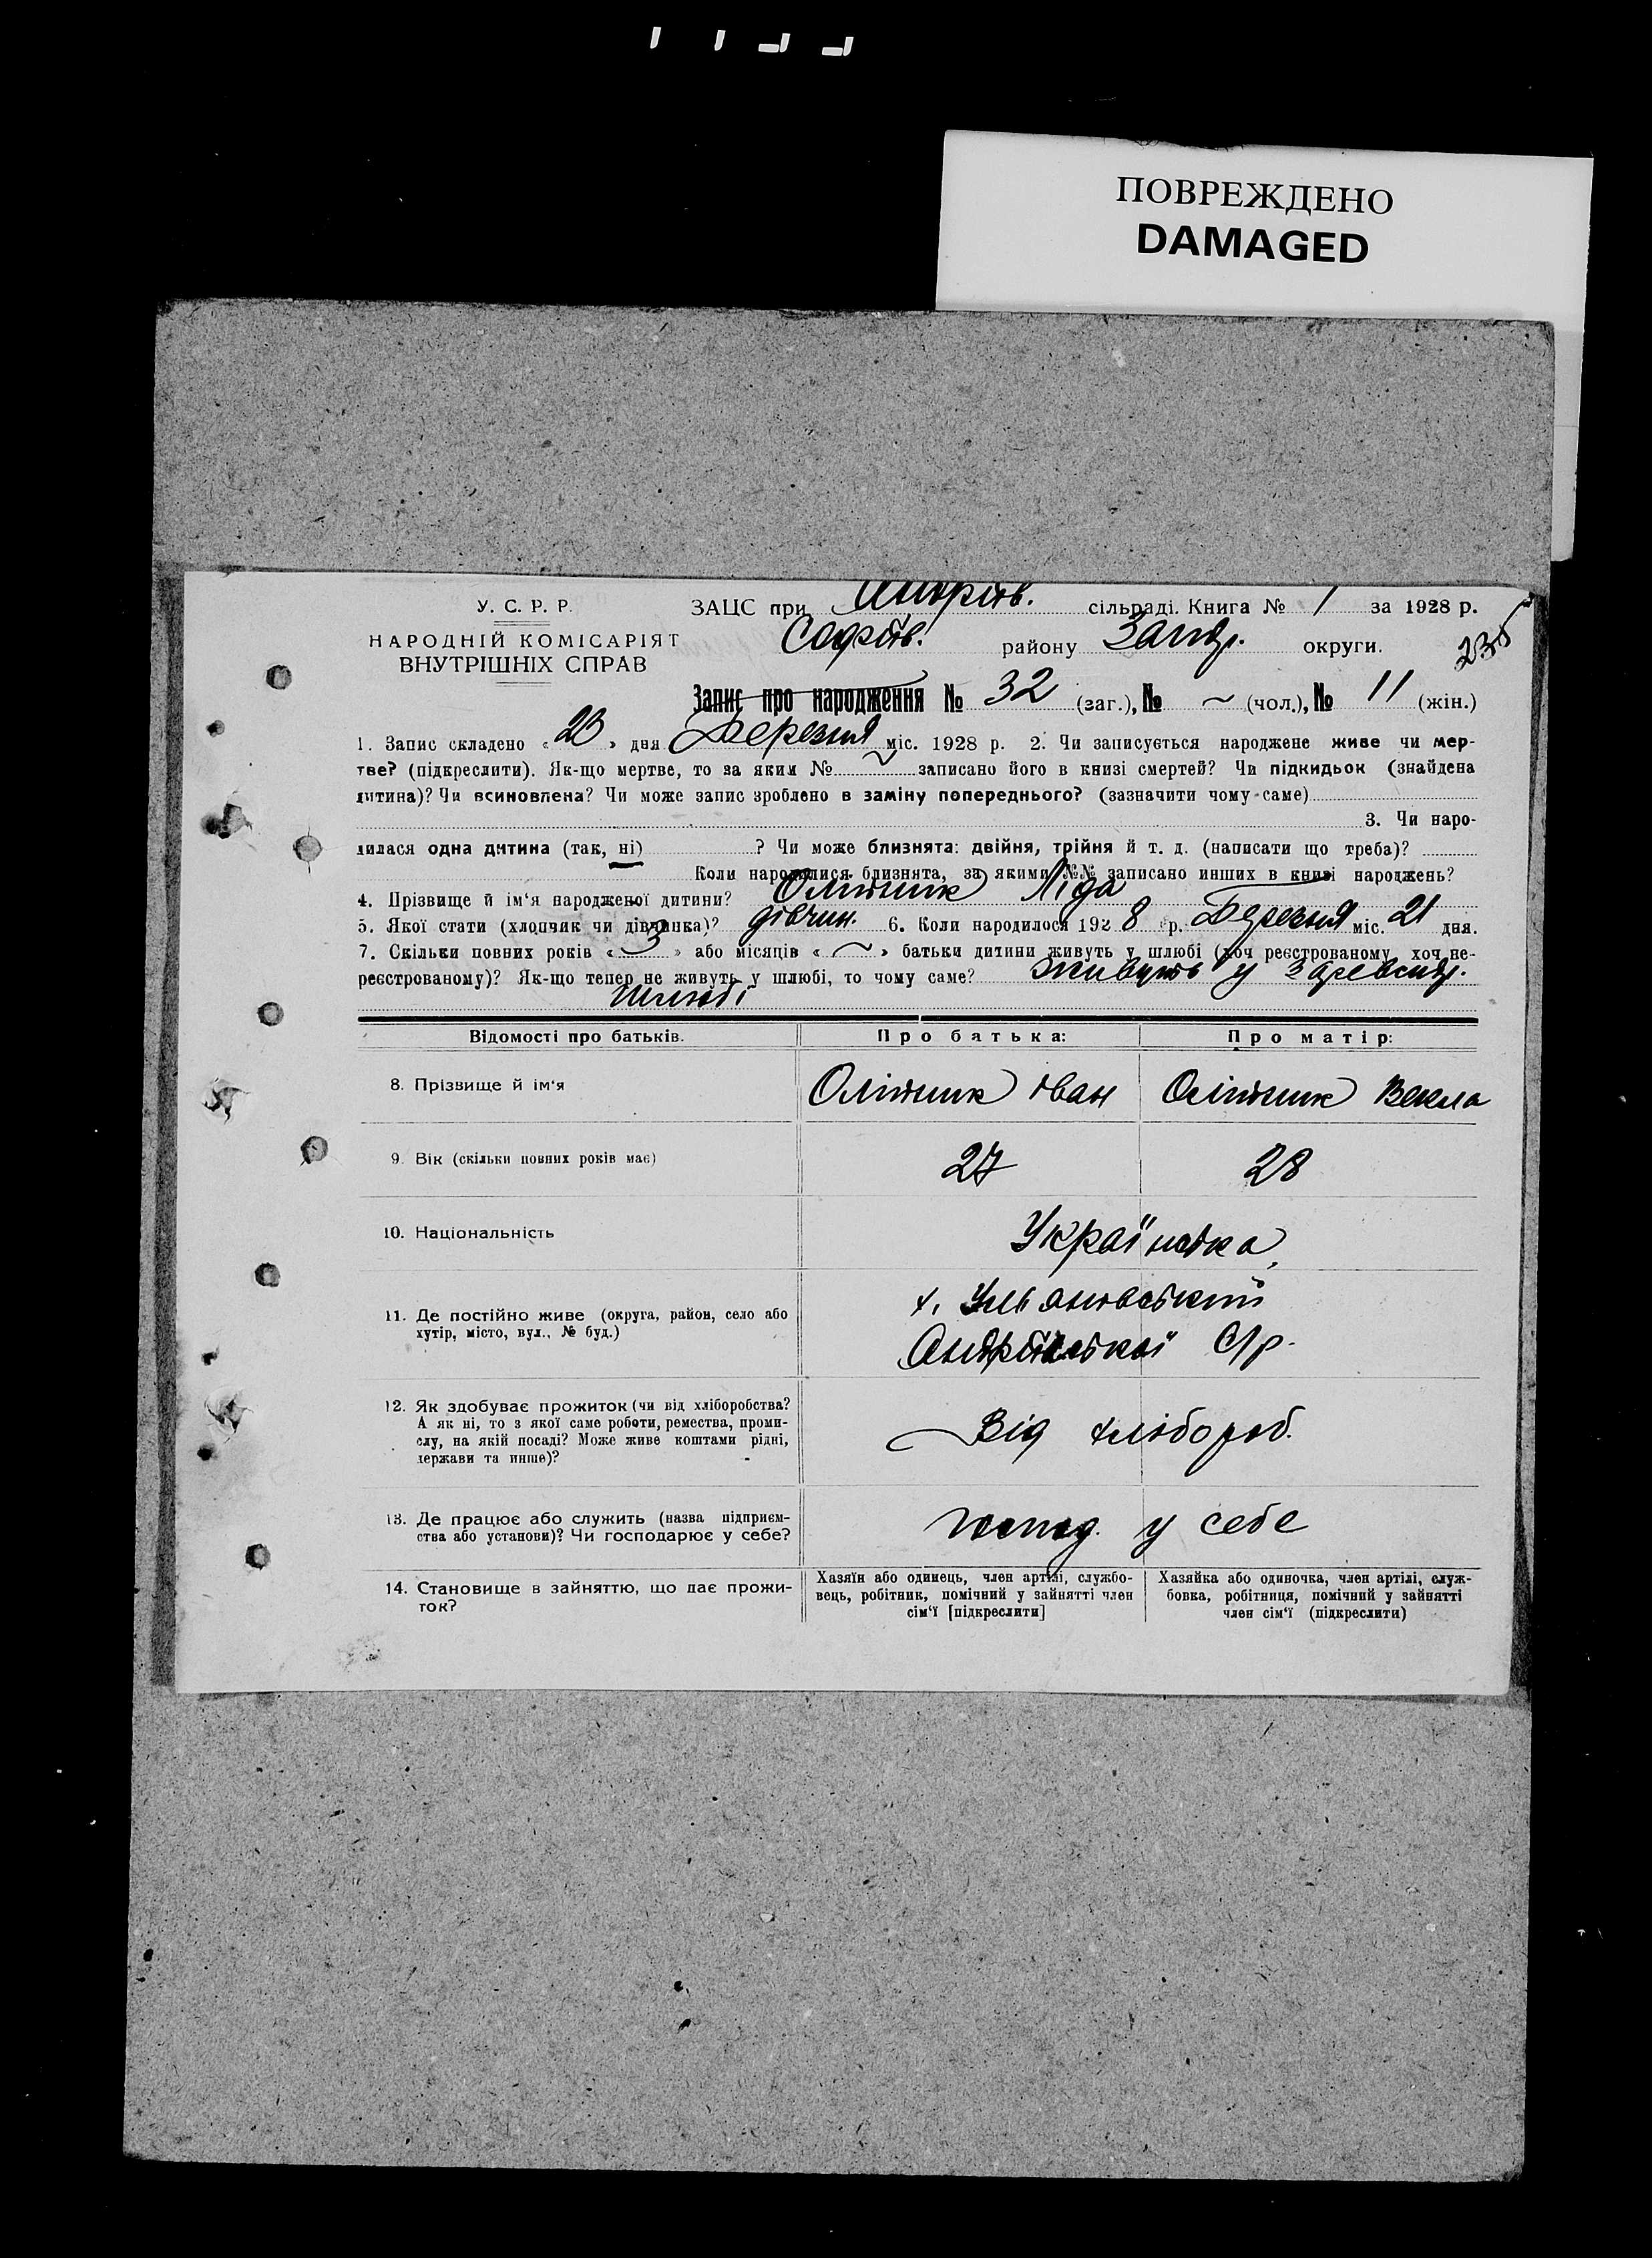 ПОВРЕЖДЕНО
DAMAGED
У. С. Р. Р.
НАРОДНІЙ КОМІСАРІЯТ
ВНУТРІШНІХ СПРАВ
ЗАЦС при Андріїв. сільраді. Книга № 1 за 1928 р.
Софіїв. району Запор. округи.
235
Запис про народження № 32 (заг.), № ~ (чол.), № 11 (жін.)
1. Запис складено « » дня Березня міс. 1928 р. 2. Чи записується народжене живе чи мер-
тве? (підкреслити). Як-що мертве, то за яким № ~ записано його в книзі смертей? Чи підкидьок (знайдена
дитина)? Чи всиновлена? Чи може запис зроблено в заміну попереднього? (зазначити чому-саме)
3. Чи наро-
дилася одна дитина (так, ні) ? Чи може близнята: двійня, трійня й т. д. (написати що треба)?
Коли народилися близнята, за якими №№ записано инших в книзі народжень?
4. Прізвище й ім‘я народженої дитини? Олійник Ліда
5. Якої стати (хлопчик чи дівчинка)? дівчин. 6. Коли народилося 1928 р. Березня міс. 21 дня.
7. Скільки повних років « 3 » або місяців « ~ » батьки дитини живуть у шлюбі (хоч реєстрованому, хоч не-
реєстрованому)? Як-що тепер не живуть у шлюбі, то чому саме? Живуть у
шлюбі
Відомості про батьків. Про батька: Про матір:
8. Прізвище й ім‘я Олійник Іван Олійник Векла
9. Вік (скільки повних років має) 27 28
10. Національність Українська
11. Де постійно живе (округа, район, село або
хутір, місто, вул., № буд.)
х. Ульяновський
Андріївської С/р.
12. Як здобуває прожиток (чи від хліборобства?
А як ні, то з якої саме роботи, ремества, проми-
слу, на якій посаді? Може живе коштами рідні,
держави та инше)?
Від хлібороб.
13. Де працює або служить (назва підприєм-
ства або установи)? Чи господарює у себе?
господ. у себе
14. Становище в зайняттю, що дає прожи-
ток?
Хазяїн або одинець, член артілі, службо-
вець, робітник, помічний у зайнятті член
сім‘ї [підкреслити]
Хазяйка або одиночка, член артілі, служ-
бовка, робітниця, помічний у зайнятті
член сім‘ї (підкреслити)